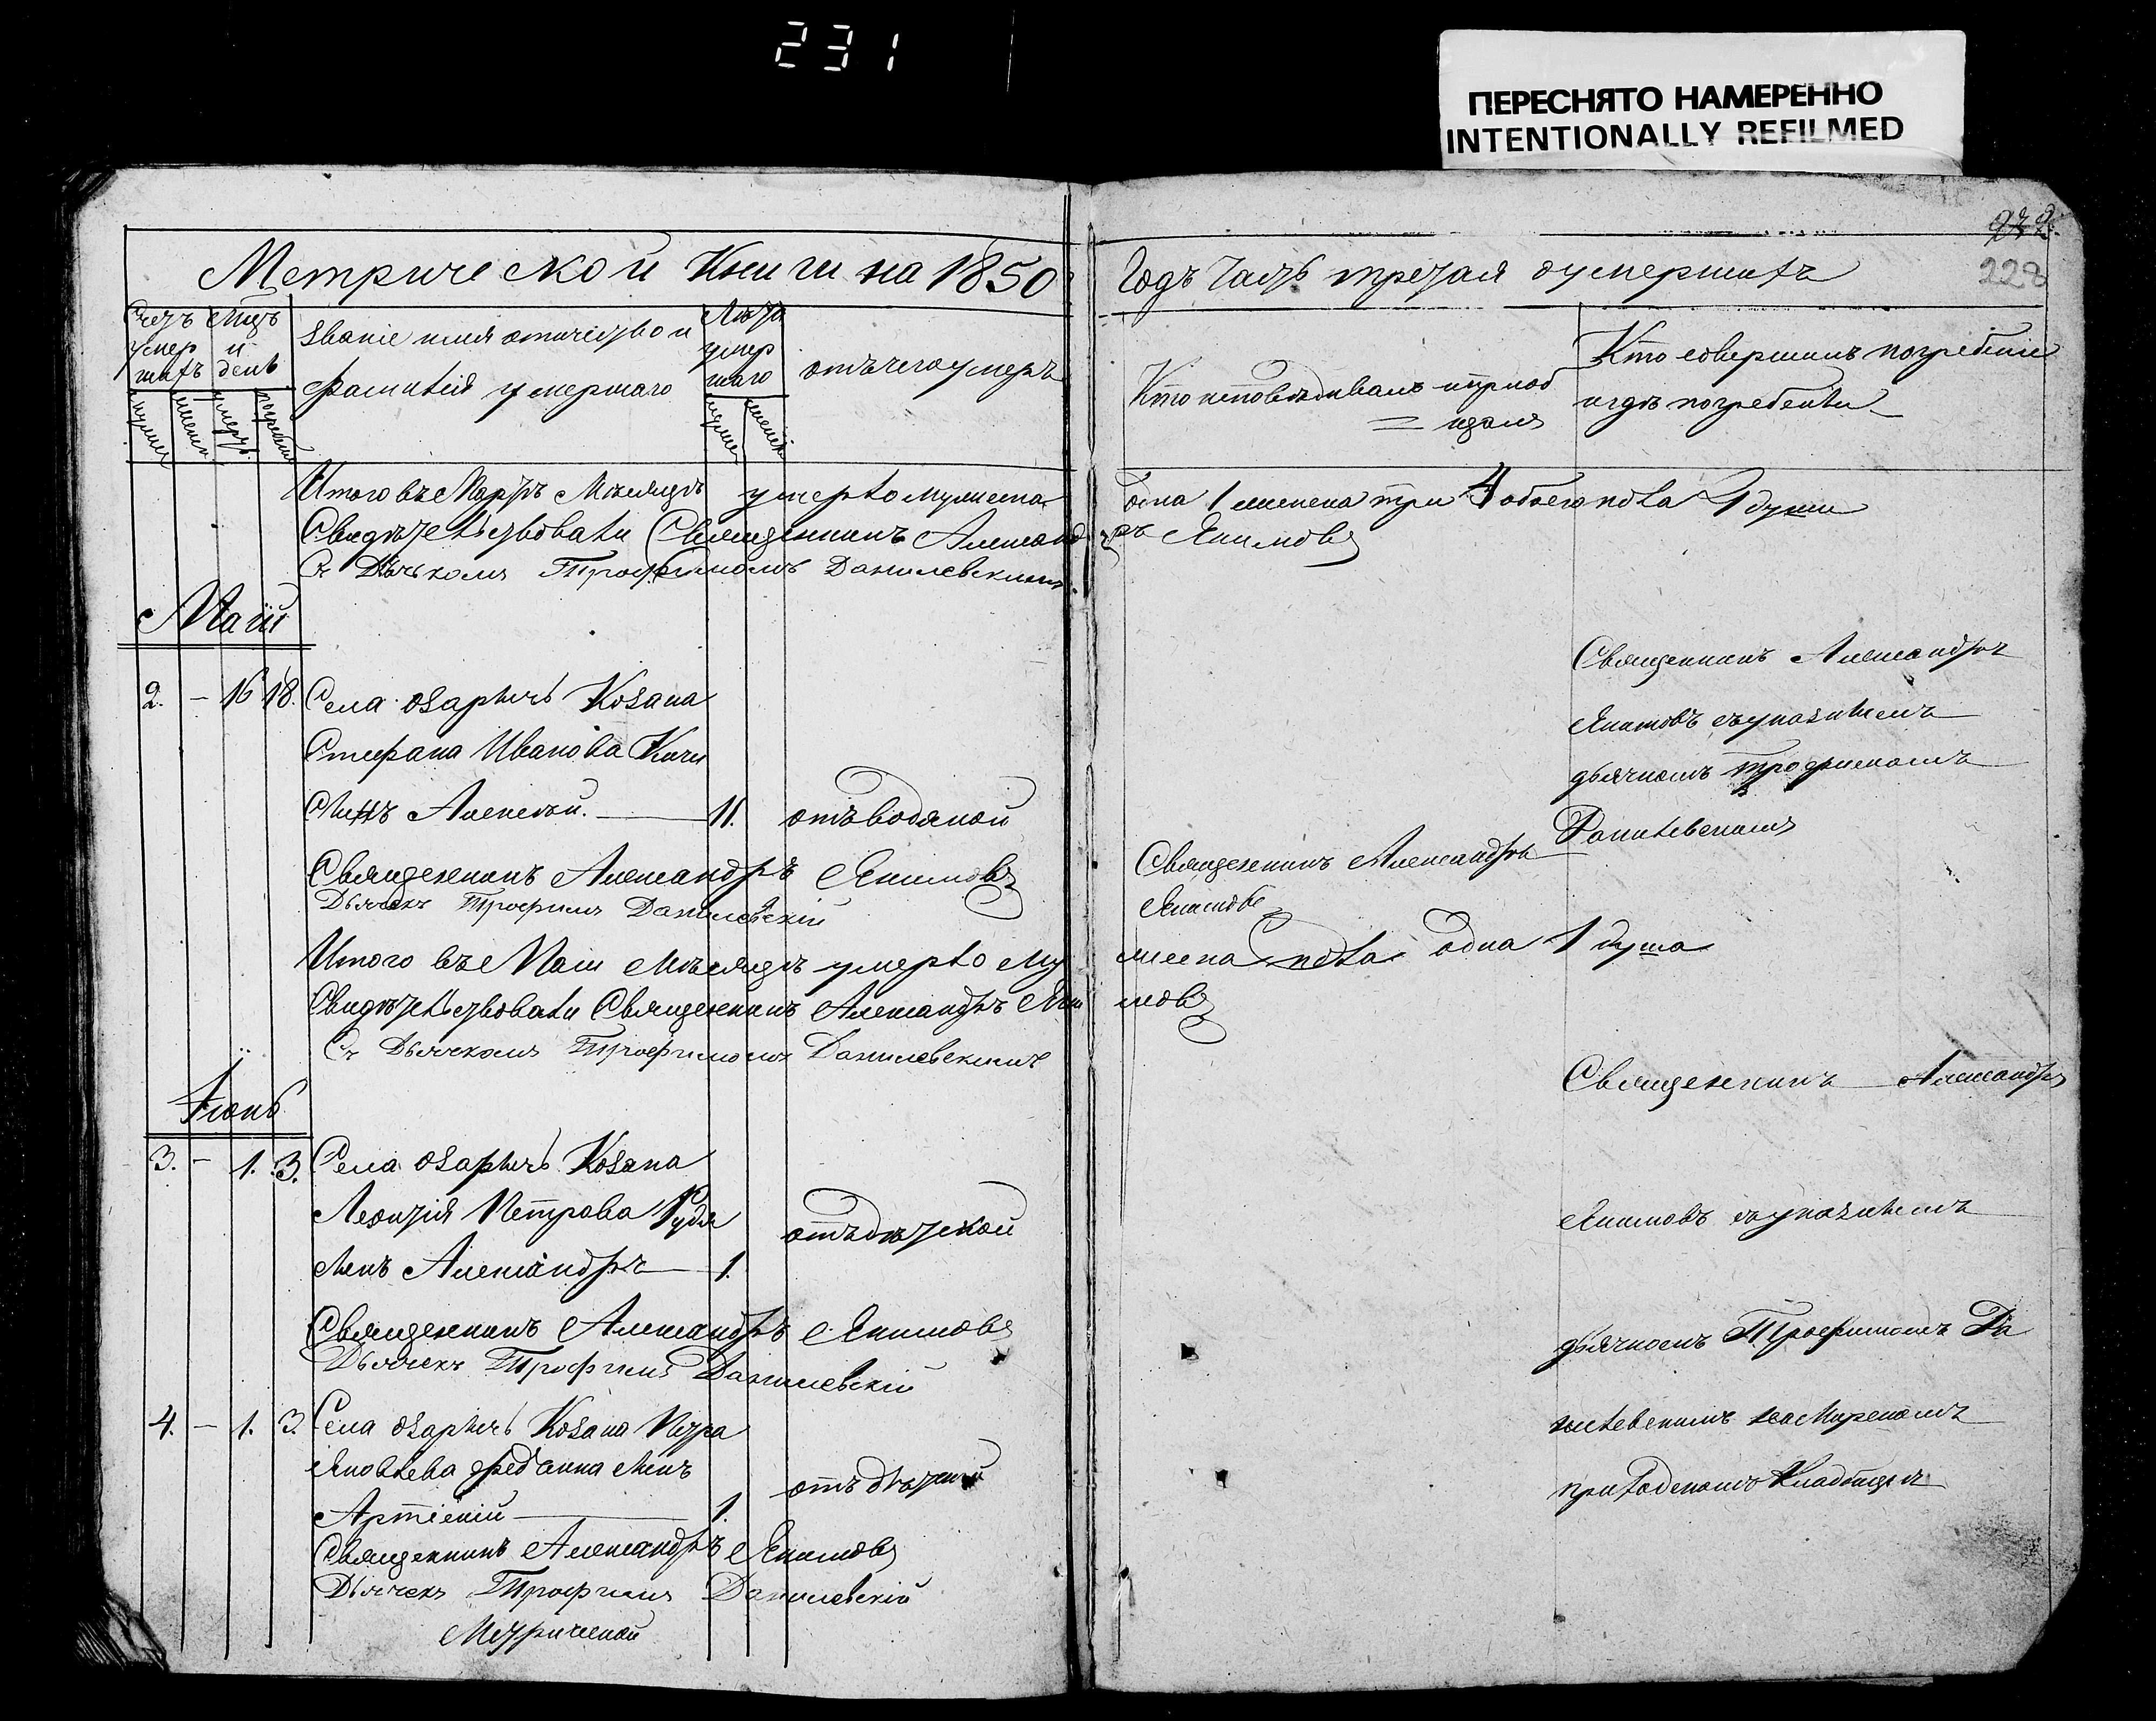 231
ПЕРЕСНЯТО НАМЕРЕННО
INTENTIONALLY REFILMED
228
Метрической Книги на 1850
Годъ Часть третая оумершихъ
Счетъ умер шихъ
Мцъ и день
Званіе имя отичество и
фамилія умершаго
Лѣта умер шаго
отъ чего умеръ
Кто исповѣдивалъ и приоб
= щалъ
Кто совершилъ погребеніе
и гдѣ погребены
Итого въ Мартѣ Мѣсяцѣ умерло мужеска
Свидѣтельствовали Священникъ Александ
Съ Дьячкомъ Трофимомъ Данилевскимъ.
1 женска три 4 обоего пола 4 души
ръ Якимовъ
Маій
2. - 16 18. Села Озаричъ Козака
Стефана Иванова Кичи
Сынъ Алексѣй. 11. отъ водяной
Священникъ Александръ Якимовъ
Дьячекъ Трофимъ Данилевскій
Итого въ Маіи Мѣсяцѣ умерло Му
Свидѣтельствовали Священникъ Александръ Яки
Съ Дьячкомъ Трофимомъ Данилевскимъ
Священникъ Александръ
Якимовъ
жеска пола одна 1 душа
мовъ
Священникъ Александръ
Якимовъ съ указнымъ
дьячкомъ Трофимомъ
Данилевскимъ
Іюнь
3. - 1. 3. Села Озаричъ Козака
Леонтія Петрова
Сынъ Александръ 1. отъ дѣтской
Священникъ Александръ Якимовъ
Дьячекъ Трофимъ Данилевскій
4. - 1. 3. Села Озаричъ Козака Петра
Яковлева Сынъ
Артемій 1. отъ дѣтской
Священникъ Александръ Якимовъ
Дьячекъ Трофимъ Данилевскій
Метрической
Священникъ Александръ
Якимовъ съ указнымъ
дьячкомъ Трофимомъ Да
нилевскимъ на Мирскомъ
приходскомъ Кладбищѣ